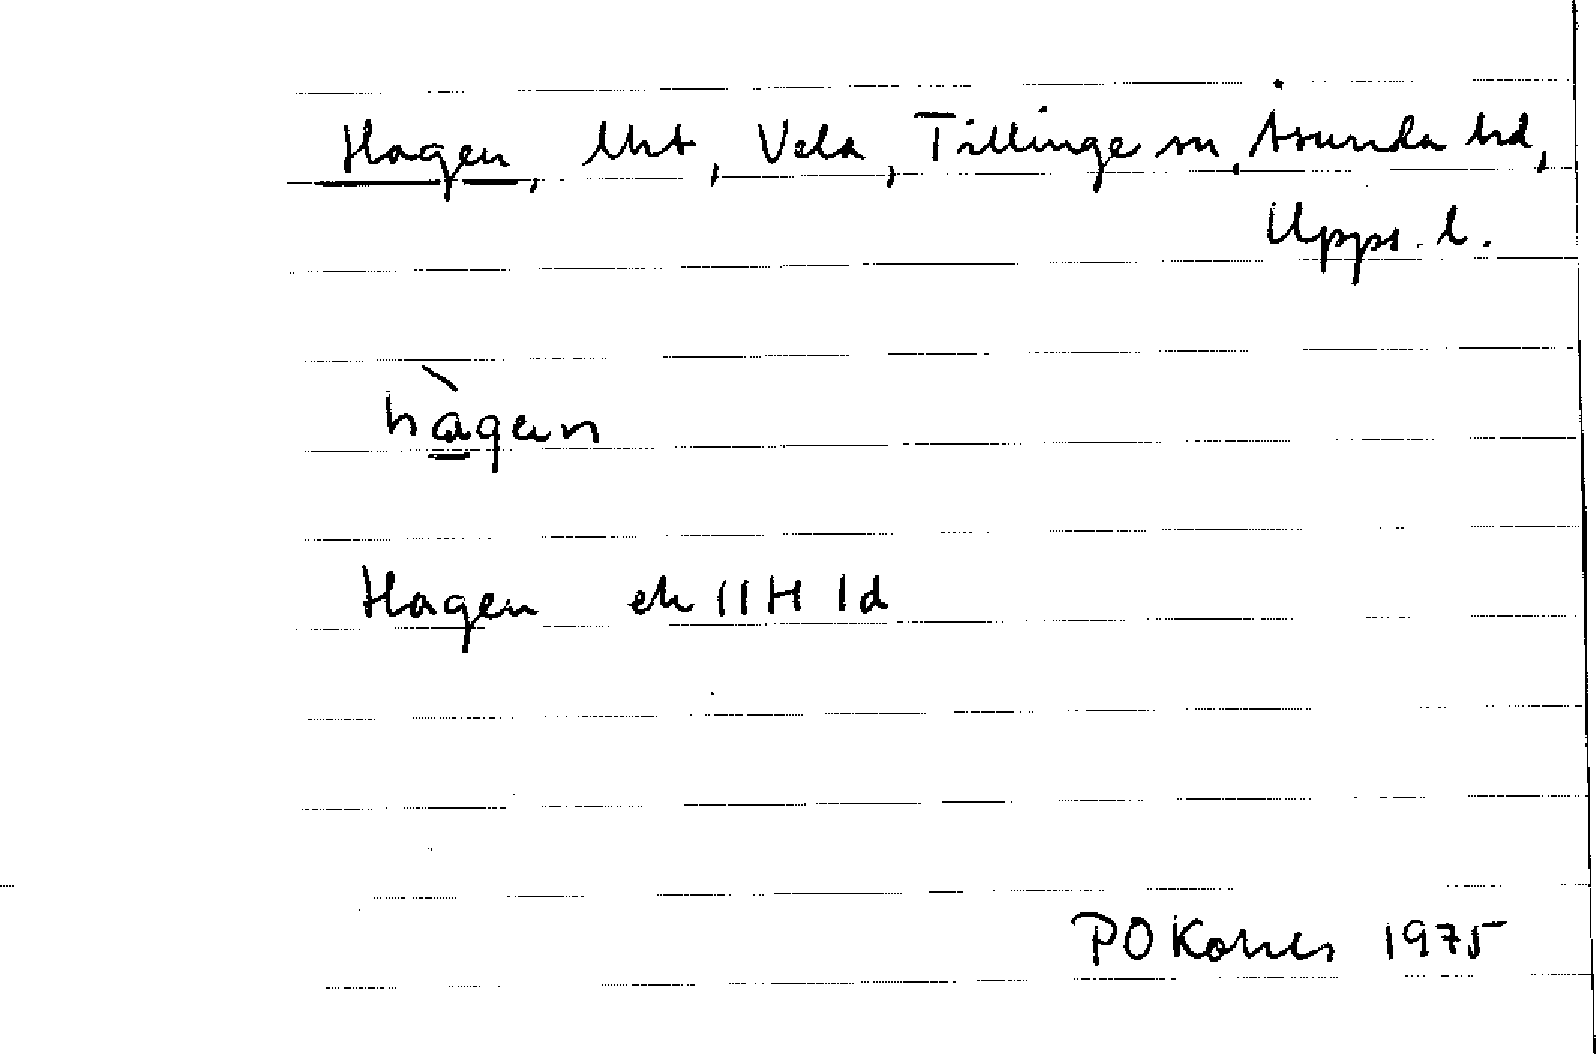 Hagen, lht, Vela, Tillinge sn, Åsunda hd,
Upps. l.
hàgen
Hagen ek 11H 1d
PO 1975